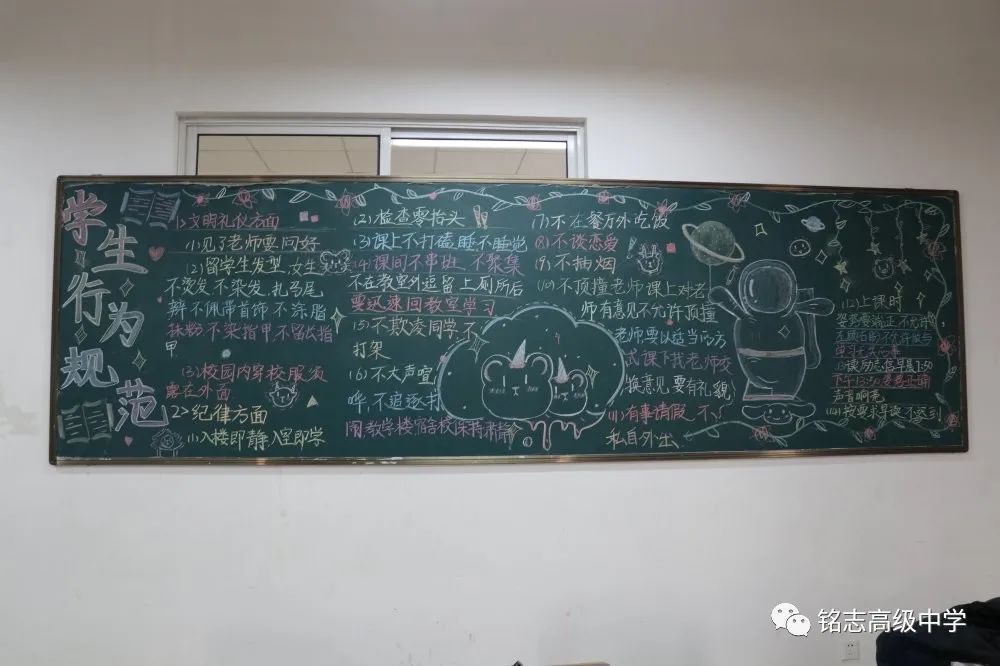 学生行为规范
1>文明礼仪方面
(1)见了老师要问好
(2)留学生发型,女生
不烫发,不染发,扎马尾
辫,不佩带首饰,不涂脂
抹粉,不染指甲,不留长指
甲
(3)校园内穿校服,衣
露在外面
2>纪律方面
(1)入楼即静,入室即学
(2)检查零抬头
(3)课上不打磕睡,不睡觉
(4)课间不串班,不聚集
不在教室外逗留,上厕所后
要迅速回教室学习
(5)不欺凌同学,不
打架
(6)不大声宣
哗,不追逐书
闹,教学楼宿舍校保持肃静
(7)不在餐厅外吃饭
(8)不谈恋爱
(9)不抽烟
(10)不顶撞老师,课上对老
师有意见不允许顶撞
老师,要以适当的方
式课下找老师交
换意见,要有礼貌
(11)有事请假,不
私自外出
(12)上课时
姿势要端正,不允许
声音响亮
(14)按要求早读,不迟到
铭志高级中学